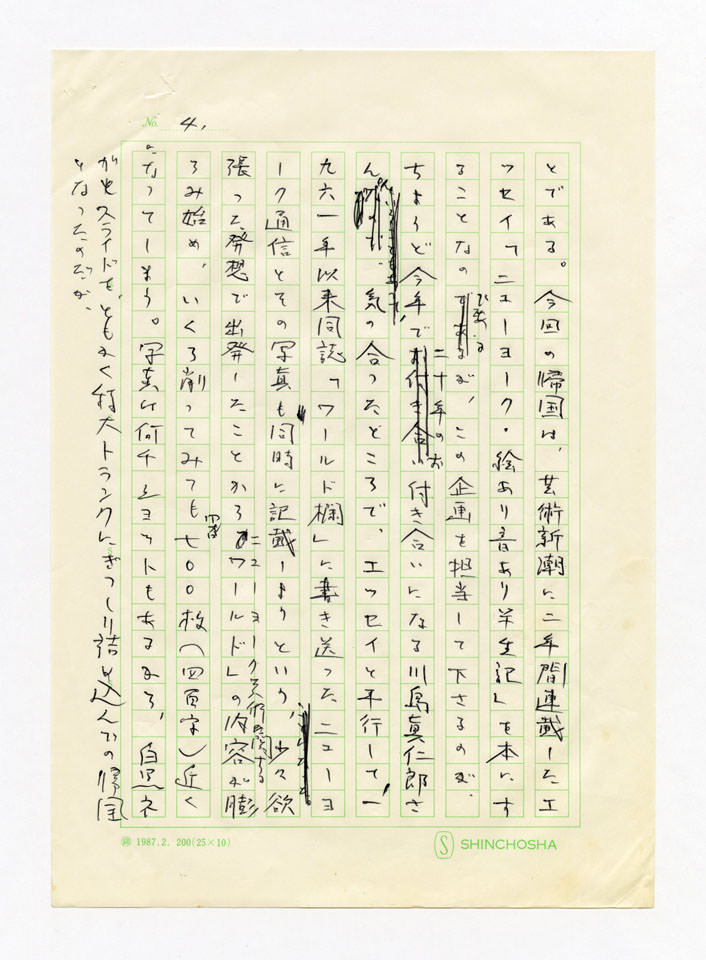 No. 4.
とである。今回の帰国は、芸術新潮に二年間連載したエ
ッセイ「ニューヨーク・絵あり音あり半生記」を本にす
ることなのであるが、この企画を担当して下さるのが、
ちょうど今年で二十年のお付き合いになる川島真仁郎さ
ん。気の合ったところで、エッセイと平行して、一
九六一年以来同誌「ワールド欄」に書き送ったニューヨ
ーク通信とその写真も同時に記載しようという、少々欲
張った発想で出発したことから、ニューヨーク美術に関する「ワールド」の内容が膨
らみ始め、いくら削ってみても七〇〇枚(四百字)近く
になってしまう。写真は何千ショットもあるから、白黒ネ
ガやスライドを、ともかく特大トランクにぎっしり詰め込んでの帰国
となったのだが、
1987.2. 200(25×10)
SHINCHOSHA